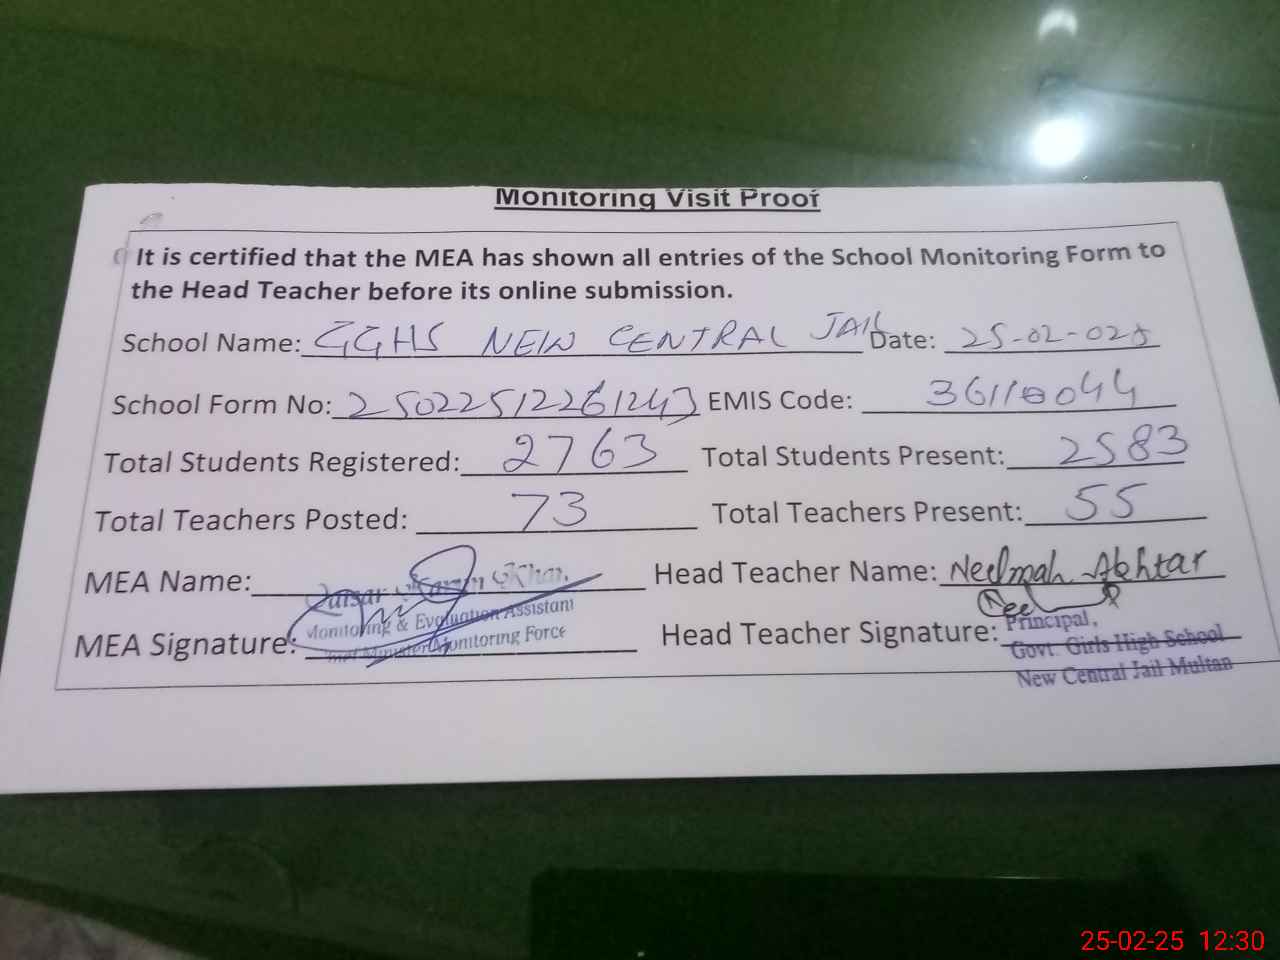 Monitoring Visit Proof
It is certified that the MEA has shown all entries of the School Monitoring Form to
the Head Teacher before its online submission.
School Name: GGHS NEW CENTRAL JAIL Date: 25-02-025
School Form No: 250225122261243 EMIS Code: 36110044
Total Students Registered: 2763 Total Students Present: 2583
Total Teachers Posted: 73 Total Teachers Present: 55
MEA Name: Qaisar Karim Khan Head Teacher Name: Neelmah Akhtar
Monitoring & Evaluation Assistant
MEA Signature: Monitoring Force Head Teacher Signature: Principal,
Govt. Girls High School
New Central Jail Multan
25-02-25 12:30